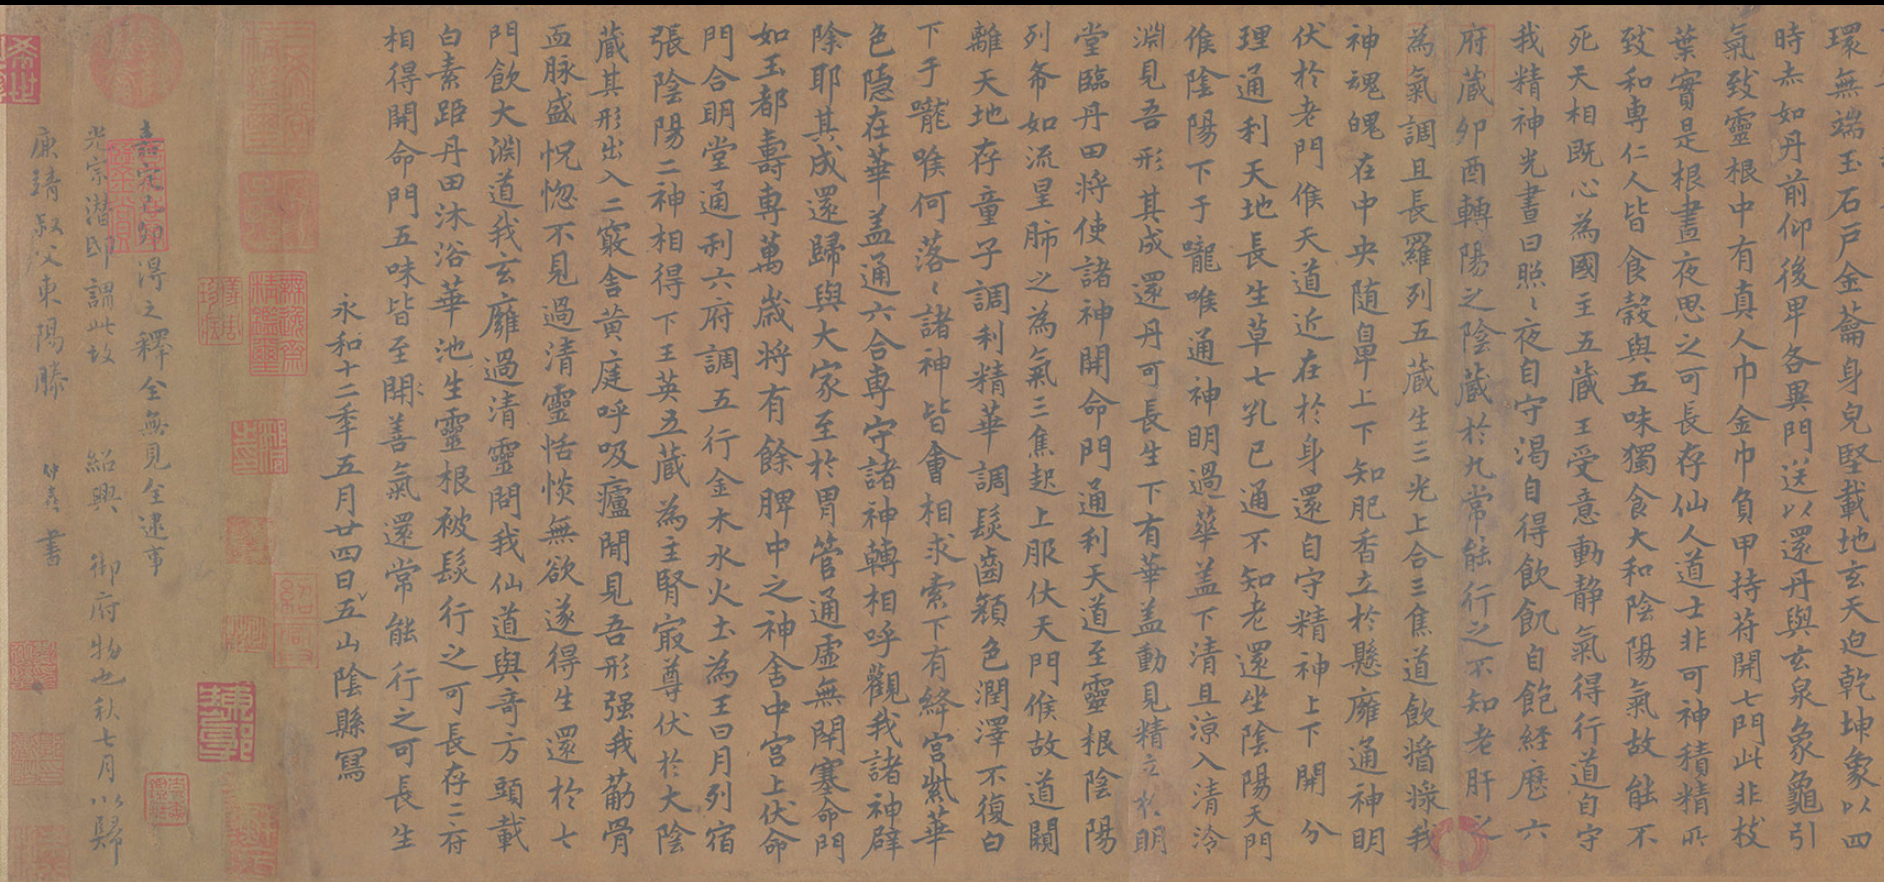 環無端玉石戶金籥身皃堅載地玄天迫乾坤象以四
時赤如丹前仰後卑各異門送以還丹與玄泉象龜引
氣致靈根中有真人巾金巾負甲持苻開七門此非枝
葉實是根晝夜思之可長存仙人道士非可神積精所
致和專仁人皆食穀與五味獨食大和陰陽氣故能不
死天相既心為國主五藏王受意動静氣得行道自守
我精神光晝日照〻夜自守渴自得飲飢自飽經歷六
府藏卯酉轉陽之陰藏於九常能行之不知老肝之
為氣調且長羅列五藏生三光上合三焦道飲醬𣼬我
神魂魄在中央随鼻上下知肥香立於懸廱通神明
伏於老門候天道近在於身還自守精神上下開分
理通利天地長生草七孔已通不知老還坐陰陽天門
候陰陽下于嚨喉通神明過華盖下清且涼入清泠
淵見吾形其成還丹可長生下有華盖動見精立於明
堂臨丹田将使諸神開命門通利天道至靈根陰陽
列布如流星肺之為氣三焦起上服伏天門候故道闚
離天地存童子調利精華調髮齒顏色潤澤不復白
下于嚨喉何落〻諸神皆會相求索下有絳宫紫華
色隱在華盖通六合専守諸神轉相呼觀我諸神辟
除耶其成還歸與大家至於胃管通虛無閉塞命門
如玉都壽専萬歲将有餘脾中之神舍中宫上伏命
門合明堂通利六府調五行金木水火土為王日月列宿
張陰陽二神相得下王英五藏為主腎冣尊伏於大陰
藏其形出入二竅舍黄庭呼吸廬閒見吾形强我葪骨
血脉盛怳惚不見過清靈恬惔無欲遂得生還於七
門飲大淵道我玄廱過清靈問我仙道與奇方頭載
白素距丹田沐浴華池生靈根被髮行之可長存二府
相得開命門五味皆至開善氣還常能行之可長生
永和十二年五月廿四日五山陰縣寫
得之釋全無見全逮事
光宗潜邸謂此故 紹興 御府物也秋七月以歸
庸錆叔父東陽滕 書